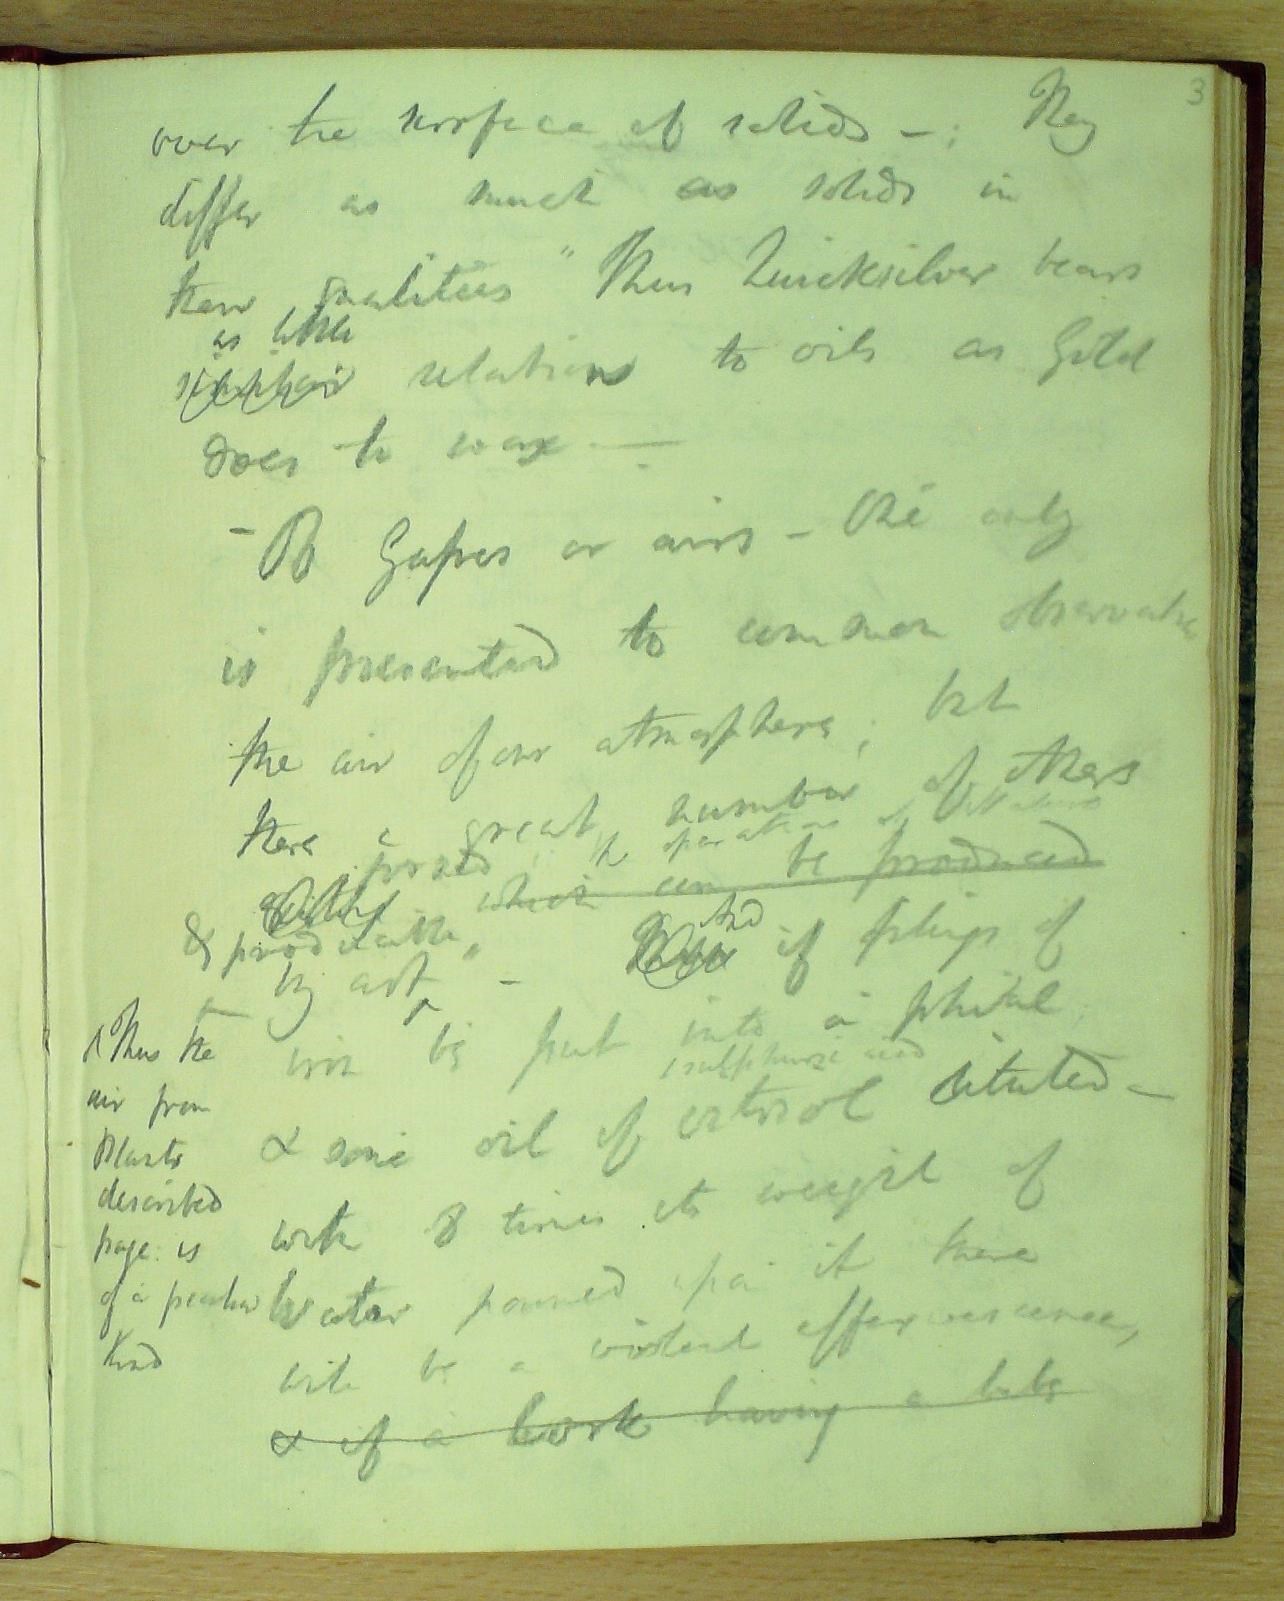 3
over the surface of solids - ; They
differ as much as solids in
their qualities " Thus Quicksilver bears
as little
similar relations to oils as Gold
does to wax —
- Of Gasses or airs - One only
is presented to common observation
the air of our atmosphere; but
there a great number of others
formed in the operations of Nature
which can be produced
& producible
by art - And if filings of
iron be put into a phial
sulphuric acid
& some oil of vitriol diluted -
with 8 times its weight of
Water poured upon it there
will be a violent effervescence,
& if a cork having a tube
Thus the
air from
Plants
described
page is
of a peculiar
kind